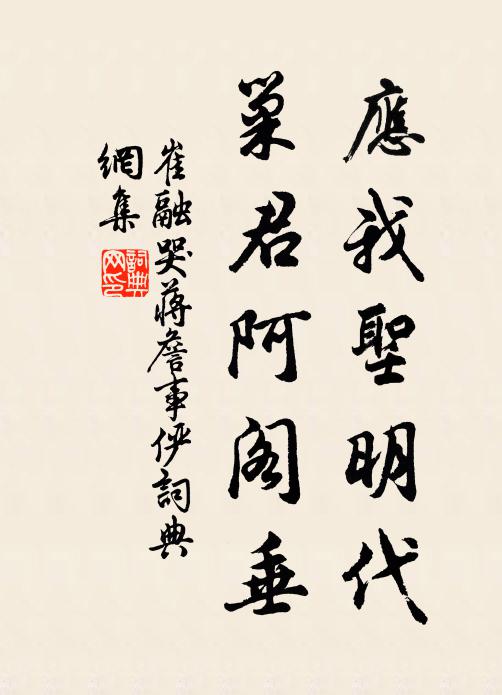 應我聖明代
巢君阿閣垂
崔融哭蔣詹事俨詞典
網集
詞典
网印